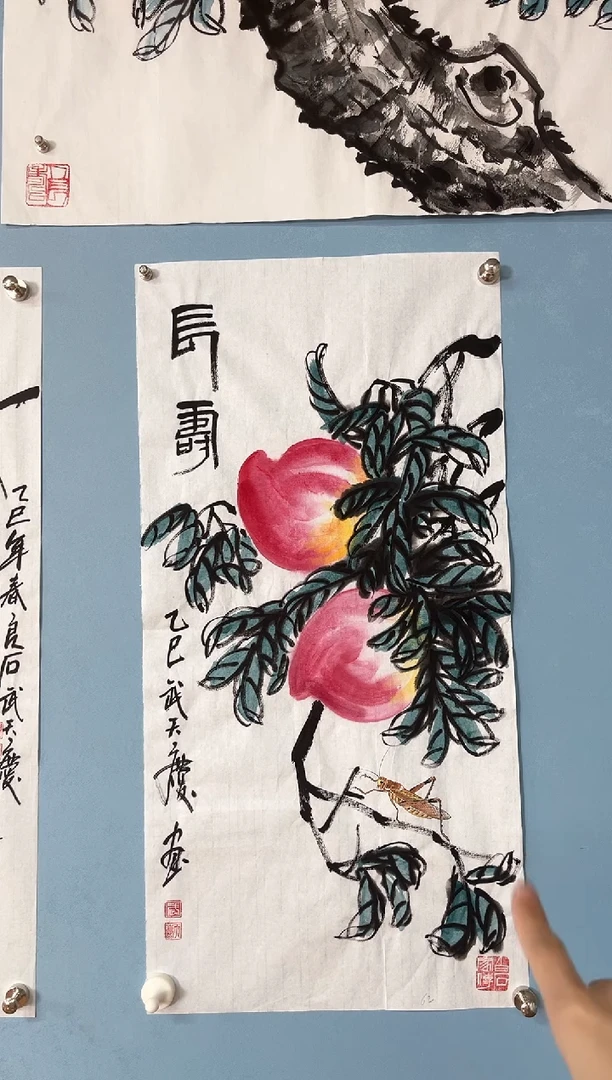 長壽
乙巳武天慶畫
乙巳年春良石武天慶